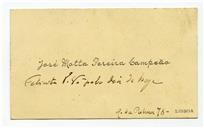 José Motta Pereira Campeão
Felicita V. pelo dia de hoje
R. da Palma 76- LISBOA